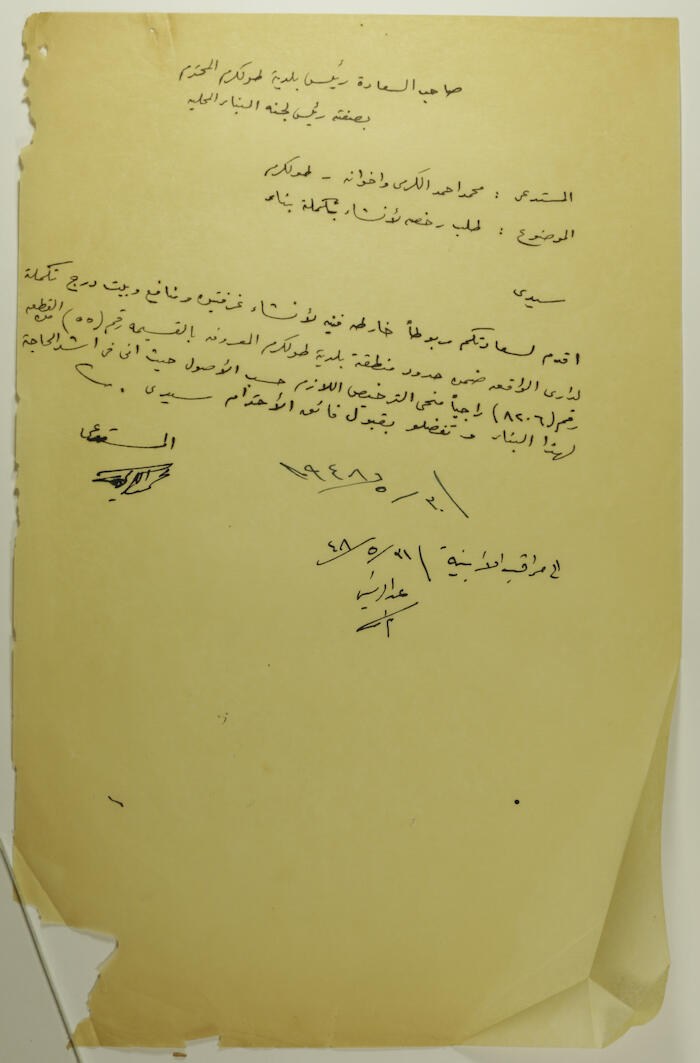 صاحب السعادة رئيس بلدية طولكرم المحترم
بصفته رئيس لجنه البناء المحليه
المستدعى : محمد احمد الكرمى واخوانه - طولكرم
الموضوع : طلب رخصه لأنشاء بتكملة بناء
سيدى
اقدم لسعادتكم مربوطاً خارطه فنيه لأنشاء غرفتين ومنافع وبيت درج تكملة
لدارى الاقعه ضمن حدود منطقة بلدية طولكرم المعروفه بالقسيمه رقم (٥٥) من القطعه
رقم (٨٢٠٦) راجياً منحى الترخيص اللازم حسب الأصول حيث انى فى اشد الحاجة
لهذا البناء وتفضلو بقبول فائق الأحترام سيدى .
المستدعى
٣٠/٥/١٩٤٨
الى مراقب الأبنية
٣١/٥/٤٨
عن الرئيس